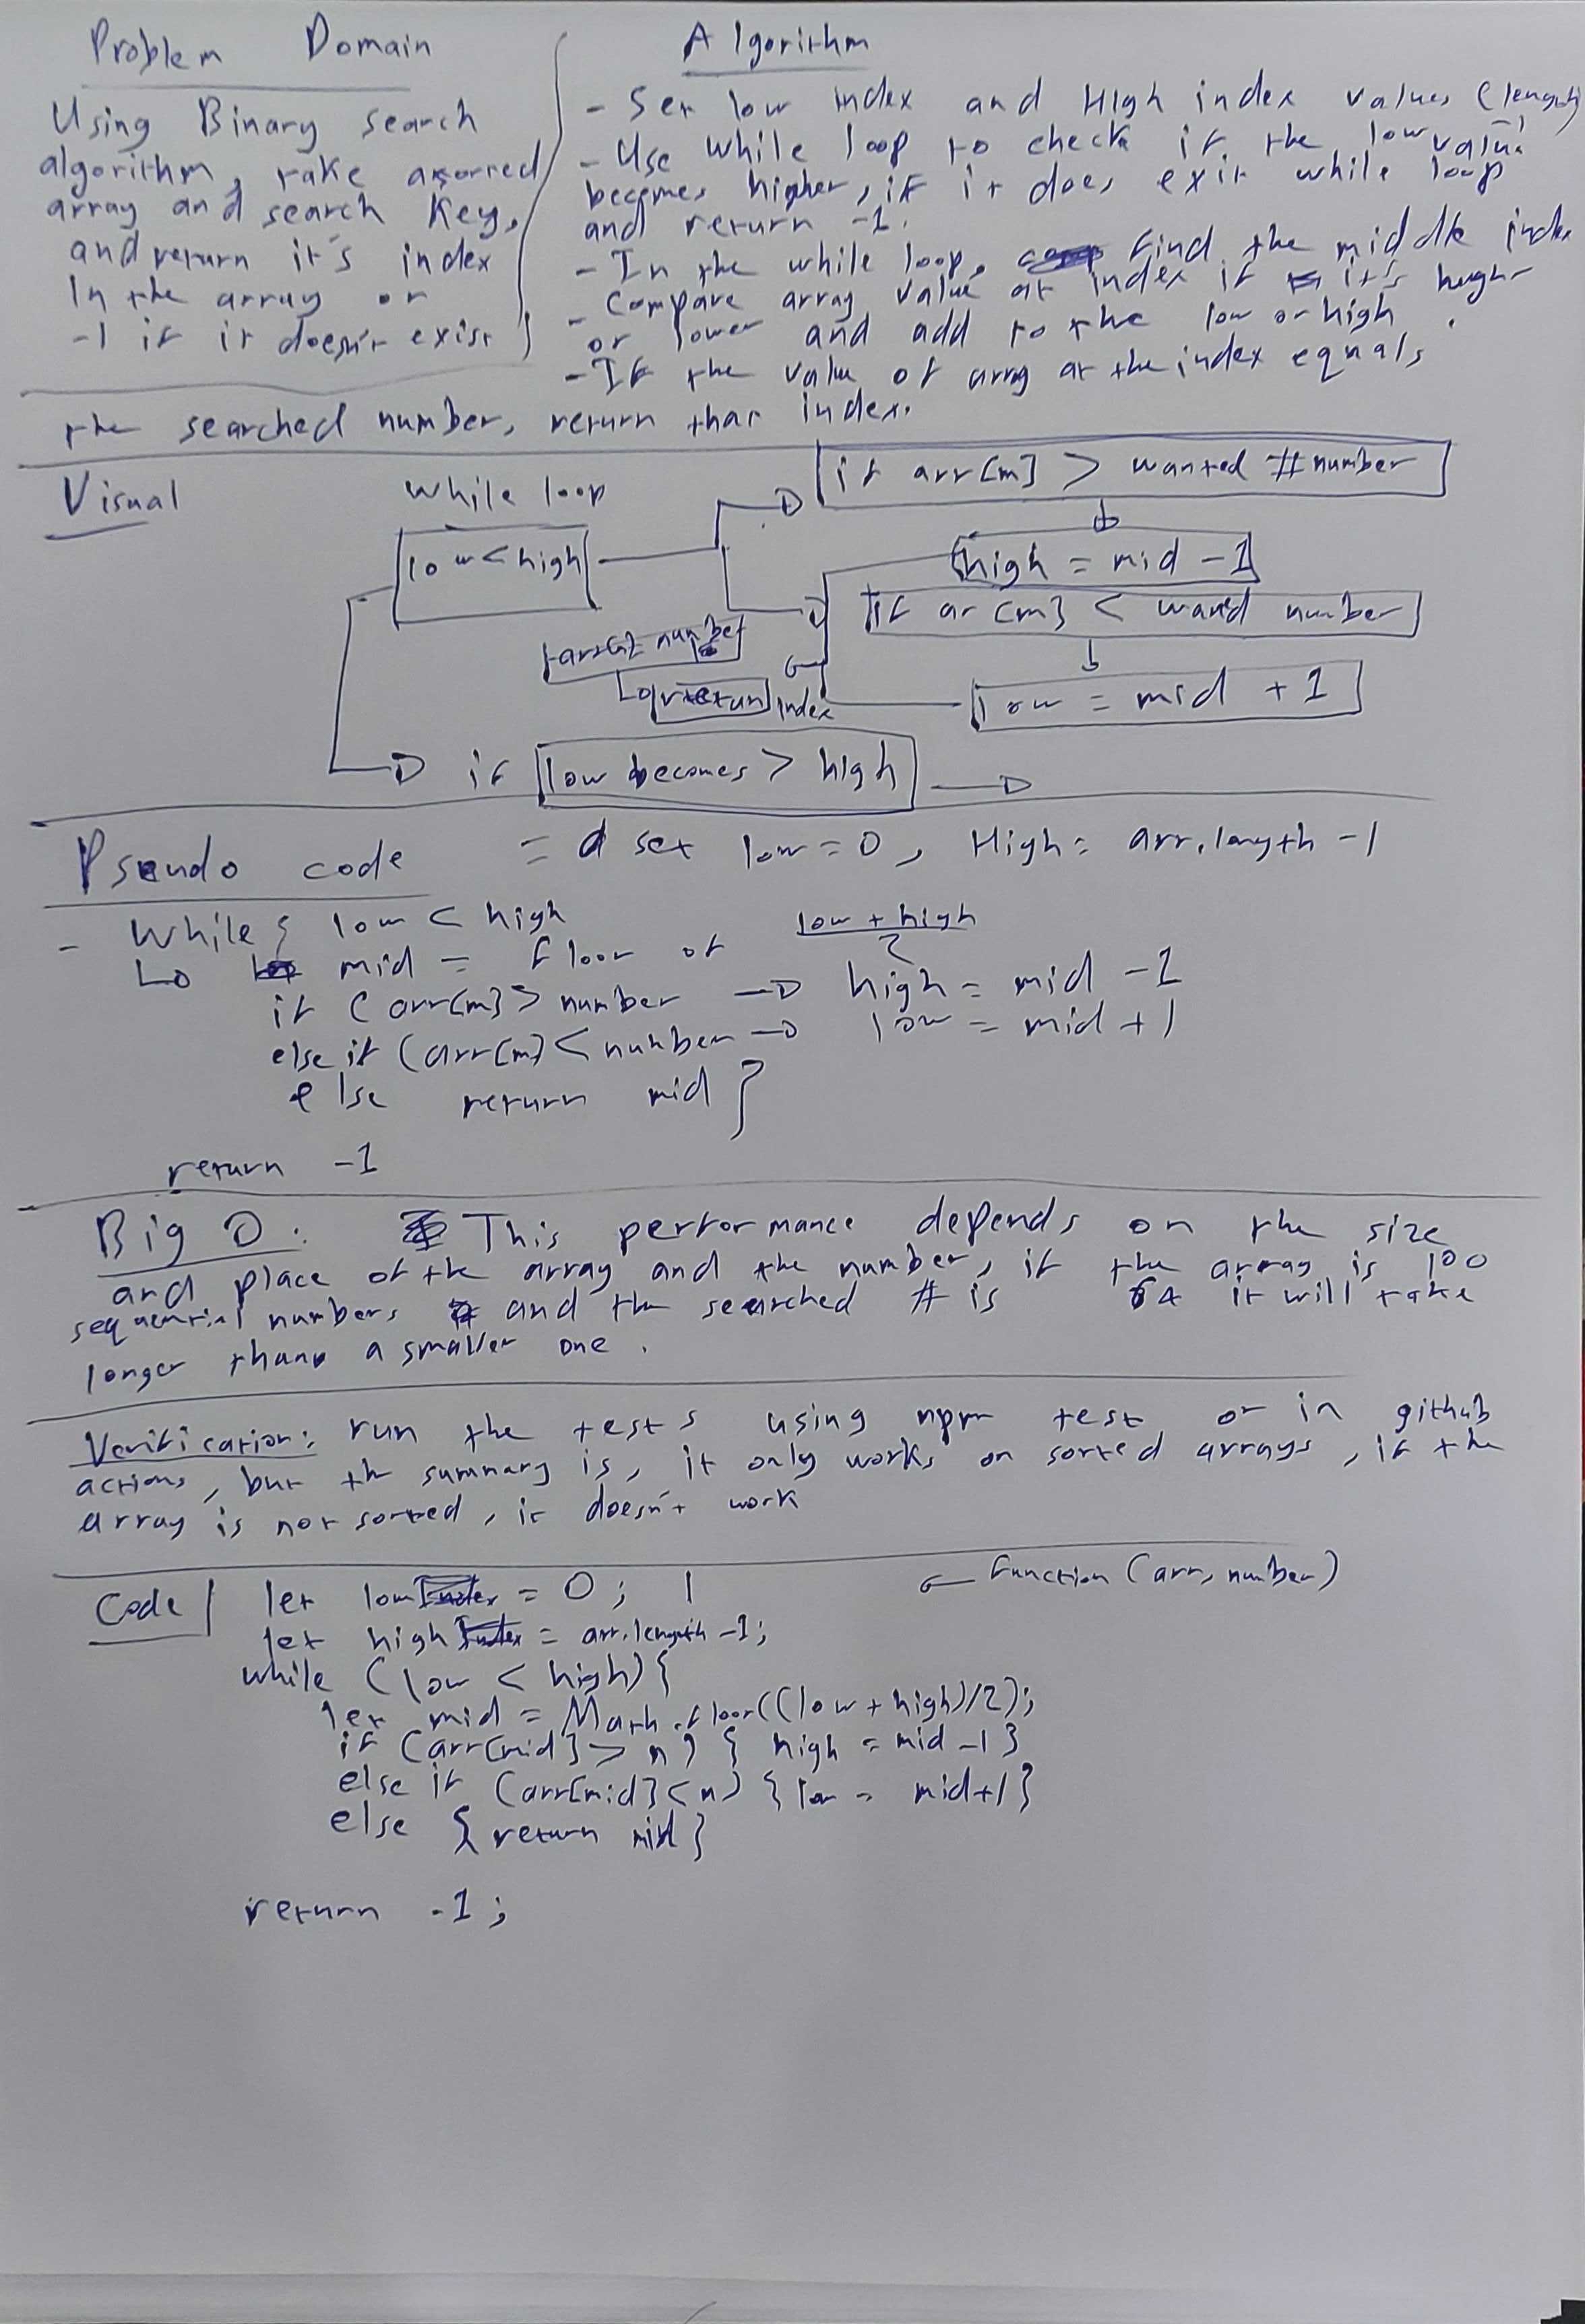 Problem Domain
Using Binary search
algorithm, take a sorted
array and search key,
and return it's index
in the array or
-1 if it doesn't exist
Algorithm
- Set low index and High index values (length)
- Use while loop to check if the low value
becomes higher, if it does exit while loop
and return -1.
- In the while loop, find the middle index
- Compare array value at index if it's higher
or lower and add to the low or high.
- If the value of array at the index equals
the searched number, return that index.
Visual
while loop
low < high
if arr[m] > wanted # number
high = mid - 1
if ar[m] < number
low = mid + 1
number
index
if low becomes > high
Pseudo code
= set low = 0, High = arr.length - 1
- While { low < high
mid = floor of low + high / 2
if (arr[m] > number → high = mid - 1
else if (arr[m] < number → low = mid + 1
else return mid }
return -1
Big O: This performance depends on the size
and place of the array and the number, if the array is 100
sequential numbers and the searched # is 64 it will take
longer than a smaller one.
Verification: run the tests using npm test or in github
actions, but th summary is, it only works on sorted arrays, if the
array is not sorted, it doesn't work
Code
← Function (arr, number)
let low = 0;
let high = arr.length -1;
while (low < high) {
let mid = Math.floor((low + high)/2);
if (arr[mid] > n) { high = mid - 1 }
else if (arr[mid] < n) { low = mid+1 }
else { return mid }
return -1;